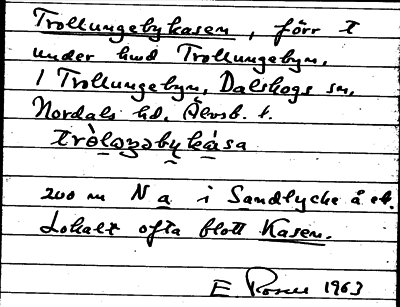 Trollungebykasen, förr t
under hmd Trollungebyn,
1 Trollungebyn, Dalskogs sn,
Nordals hd, Älvsb. l.
200 m N a i Sandlycke å ek.
Lokalt ofta blott Kasen.
E 1963